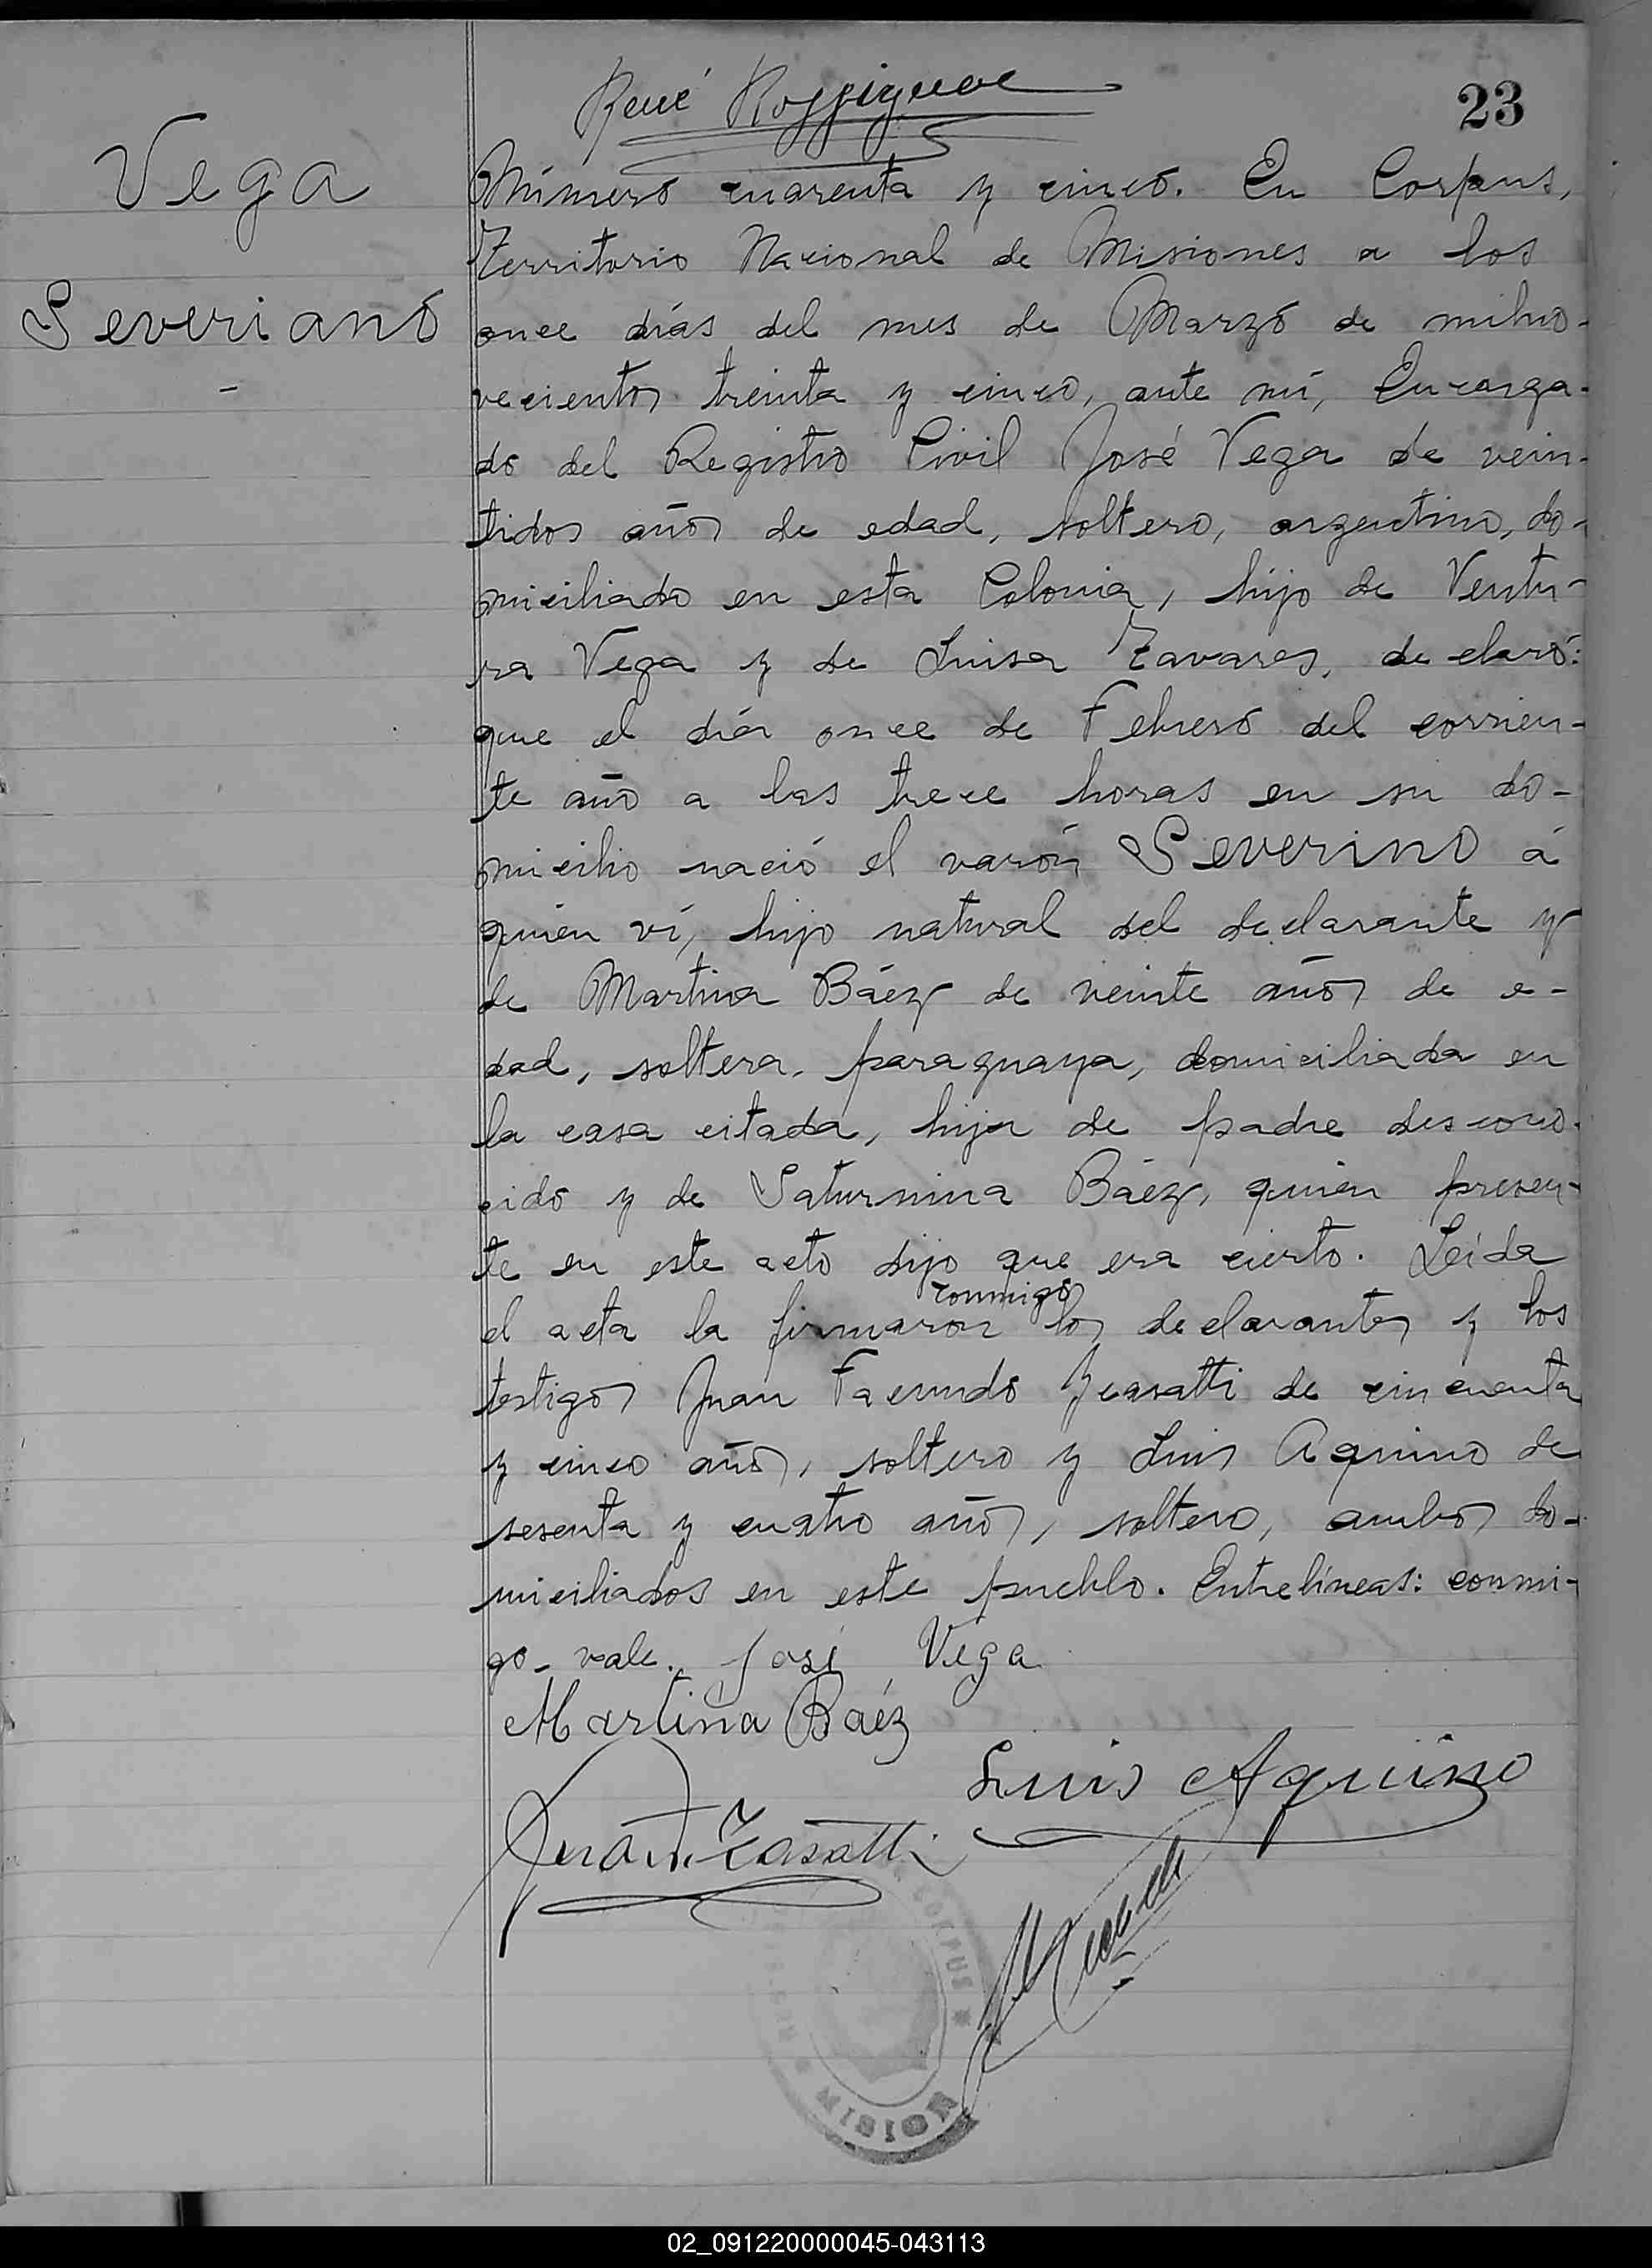 René Rossignol
23
Vega
Severiano
Número cuarenta y cinco. En Corpus,
Territorio Nacional de Misiones a los
once días del mes de Marzo de milno-
vecientos treinta y cinco, ante mí, Encarga-
do del Registro Civil José Vega de vein-
tidos años de edad, soltero, argentino, do-
miciliado en esta Colonia, hijo de Ventu-
ra Vega y de Luisa Tavares, declaró:
que el día once de Febrero del corrien-
te año a las trece horas en su do-
micilio nació el varón Severino á
quien ví, hijo natural del declarante y
de Martina Báez de veinte años de e-
dad, soltera, paraguaya, domiciliada en
la casa citada, hija de padre descono-
cido y de Saturnina Báez, quien presen-
te en este acto dijo que era cierto. Leída
conmigo
el acta la firmaron los declarantes y los
testigos Juan Facundo Zasatti de cincuenta
y cinco años, soltero y Luis Aquino de
sesenta y cuatro años, soltero, ambos do-
miciliados en este pueblo. Entrelíneas: conmi-
go- vale. José Vega
Martina Báez
Luis Aquino
Juan F. Zasatti
CORPUS
MISION
02_091220000045-043113